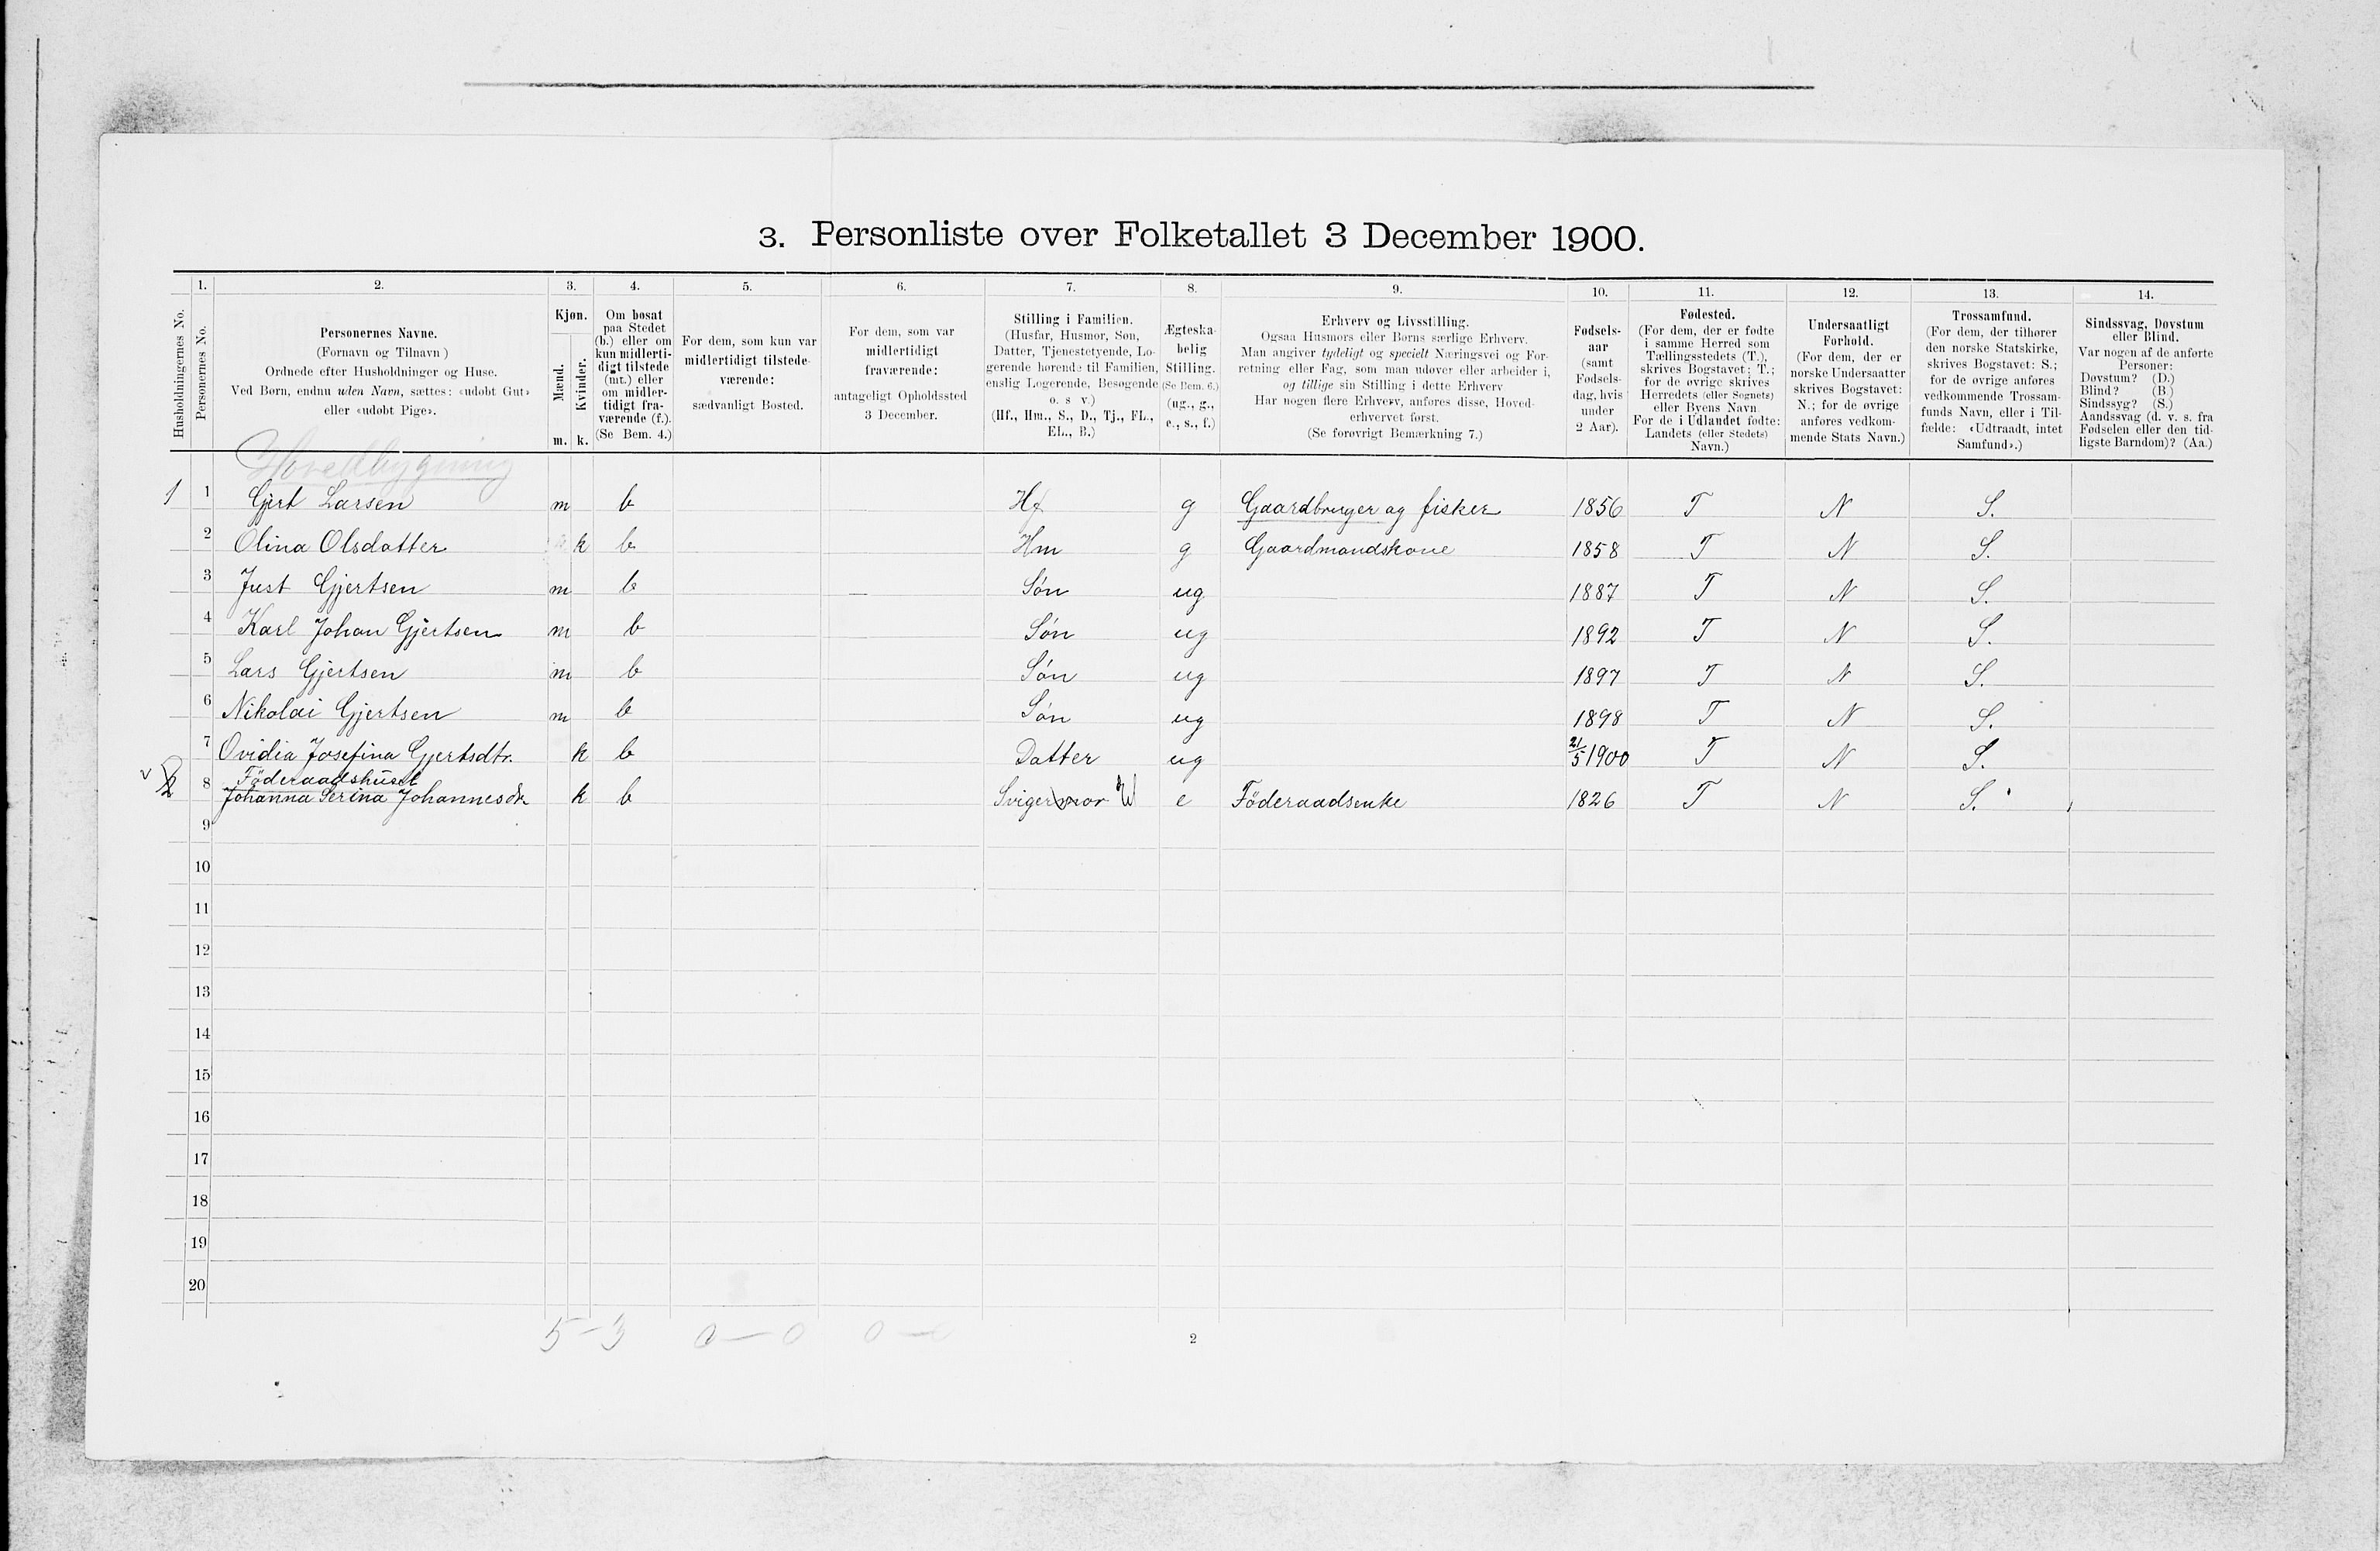 3. Personliste over Folketallet 3 December 1900.
1. 2. 3. 4. 5. 6. 7. 8. 9. 10. 11. 12. 13. 14.
Husholdningernes No.
Personernes No.
Personernes Navne.
(Fornavn og Tilnavn)
Ordnede efter Husholdninger og Huse.
Ved Børn, endnu uden Navn, sættes: «udøbt Gut»
eller «udøbt Pige».
Kjøn.
Mænd.
Kvinder.
m. k.
Om bosat
paa Stedet
(b.) eller om
kun midlerti-
digt tilstede
(mt.) eller
om midler-
tidigt fra-
værende (f.).
(Se Bem. 4.)
For dem, som kun var
midlertidigt tilstede-
værende:
sædvanligt Bosted.
For dem, som var
midlertidigt
fraværende:
antageligt Opholdssted
3 December.
Stilling i Familien.
(Husfar, Husmor, Søn,
Datter, Tjenestetyende, Lo-
gerende hørende til Familien,
enslig Logerende, Besøgende
o. s. v.)
(Hf., Hm., S., D., Tj., FL.,
EL., B.)
Ægteska-
belig
Stilling.
(Se Bem. 6.)
(ug., g.,
e., s., f.)
Erhverv og Livsstilling.
Ogsaa Husmors eller Børns særlige Erhverv.
Man angiver tydeligt og specielt Næringsvei og For-
retning eller Fag, som man udøver eller arbeider i,
og tillige sin Stilling i dette Erhverv
Har nogen flere Erhverv, anføres disse, Hoved-
erhvervet først.
(Se forøvrigt Bemærkning 7.)
Fødsels-
aar
(samt
Fødsels-
dag, hvis
under
2 Aar).
Fødested.
(For dem, der er fødte
i samme Herred som
Tællingsstedets (T.),
skrives Bogstavet: T.;
for de øvrige skrives
Herredets (eller Sognets)
eller Byens Navn
For de i Udlandet fødte:
Landets (eller Stedets)
Navn.)
Undersaatligt
Forhold.
(For dem, der er
norske Undersaatter
skrives Bogstavet:
N.; for de øvrige
anføres vedkom-
mende Stats Navn.)
Trossamfund.
(For dem, der tilhører
den norske Statskirke,
skrives Bogstavet: S.;
for de øvrige anføres
vedkommende Trossam-
funds Navn, eller i Til-
fælde: «Udtraadt, intet
Samfund».)
Sindssvag, Døvstum
eller Blind.
Var nogen af de anførte
Personer:
Døvstum? (D.)
Blind? (B.)
Sindssyg? (S.)
Aandssvag (d. v. s. fra
Fødselen eller den tid-
ligste Barndom)? (Aa.)
Hovedbygning
1 1 Gjert Larsen m b Hf g Gaardbruger og fisker 1856 T N S.
2 Olina Olsdatter k b Hm g Gaardmandskone 1858 T N S.
3 Just Gjertsen m b Søn ug 1887 T N S.
4 Karl Johan Gjertsen m b Søn ug 1892 T N S.
5 Lars Gjertsen m b Søn ug 1897 T N S.
6 Nikolai Gjertsen m b Søn ug 1898 T N S.
7 Ovidia Josefina Gjertsdtr. k b Datter ug 21/5 1900 T N S.
Föderaadshuset
v 2 8 Johanna Serina Johannesdtr k b Svigermor e Föderaadsenke 1826 T N S.
9
10
11
12
13
14
15
16
17
18
19
20
5 – 3 0 – 0 0 – 0
2